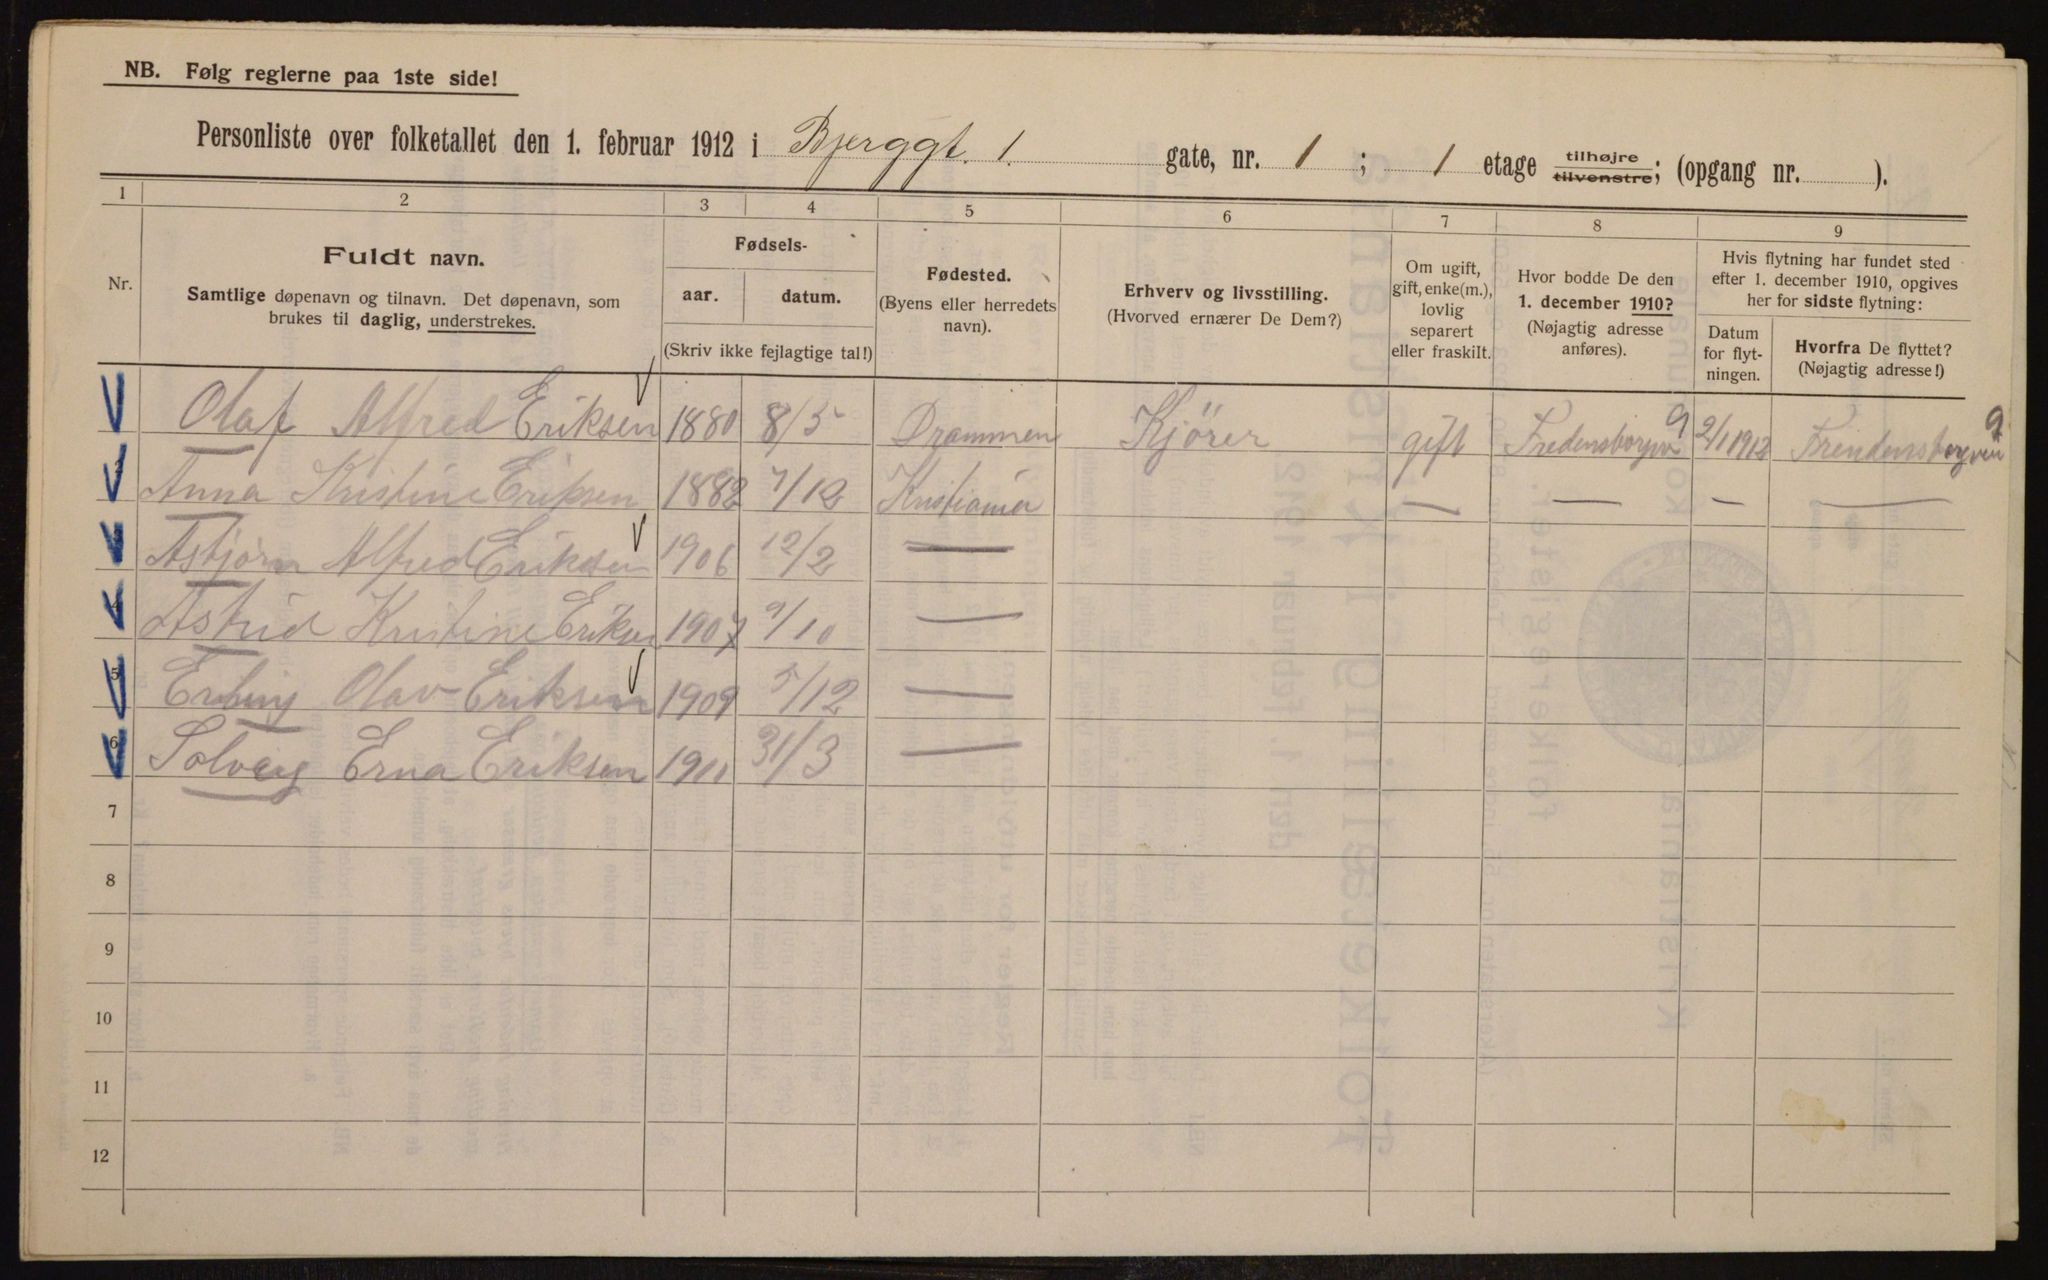 NB. Følg reglerne paa 1ste side!
Personliste over folketallet den 1. februar 1912 i Bjerggt. 1. gate, nr. 1 ; 1 etage tilhøjre tilvenstre; (opgang nr. ).
1 2 3 4 5 6 7 8 9
Nr.
Fuldt navn.
Samtlige døpenavn og tilnavn. Det døpenavn, som
brukes til daglig, understrekes.
Fødsels-
aar. datum.
(Skriv ikke fejlagtige tal!)
Fødested.
(Byens eller herredets
navn).
Erhverv og livsstilling.
(Hvorved ernærer De Dem?)
Om ugift,
gift, enke(m.),
lovlig
separert
eller fraskilt.
Hvor bodde De den
1. december 1910?
(Nøjagtig adresse
anføres).
Hvis flytning har fundet sted
efter 1. december 1910, opgives
her for sidste flytning:
Datum
for flyt-
ningen.
Hvorfra De flyttet?
(Nøjagtig adresse!)
Olaf Alfred Eriksen 1880 8/5 Drammen Kjörer gift Fredensborgvn 9 2/1 1912 Frendensborgvein 9
Anna Kristine Eriksen 1882 7/12 Kristiania — — — —
Asbjörn Alfred Eriksen 1906 12/2 —
4 Astrid Kristine Eriksen 1907 9/10 —
5 Erling Olav Eriksen 1909 5/12 —
6 Solveig Erna Eriksen 1911 31/3 —
7
8
9
10
11
12